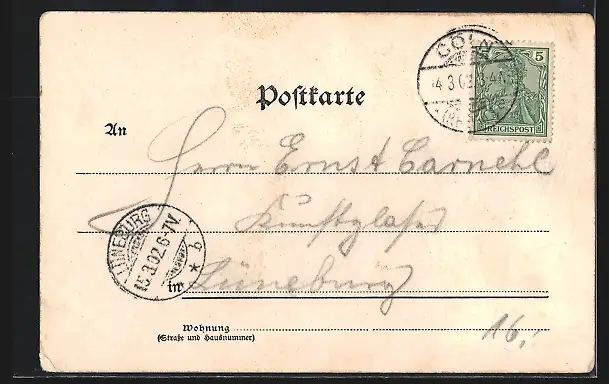 CÖLN
4 3 02
5 5
REICHSPOST
Postkarte
An
Herrn Ernst Carnehl
Kunstglaser
LÜNEBURG
15.3.02.6-7V.
* b
in Lüneburg
Wohnung
(Straße und Hausnummer)
16.